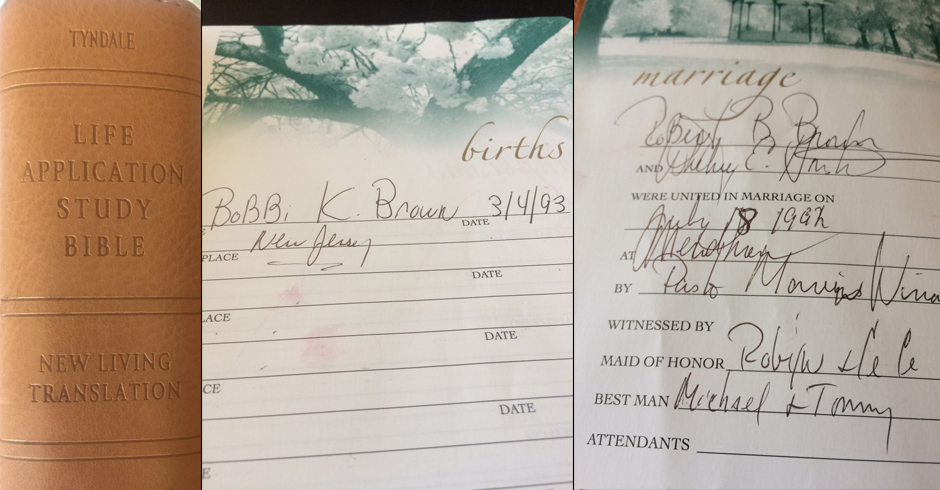 TYNDALE
LIFE
APPLICATION
STUDY
BIBLE
NEW LIVING
TRANSLATION
births
BoBBi K. Brown DATE 3/4/93
PLACE New Jersey
DATE
LACE
DATE
CE
DATE
E
marriage
Robert B. Brown
AND E.
WERE UNITED IN MARRIAGE ON
July 18 1992
AT
BY
WITNESSED BY
MAID OF HONOR
BEST MAN Michael & Tommy
ATTENDANTS